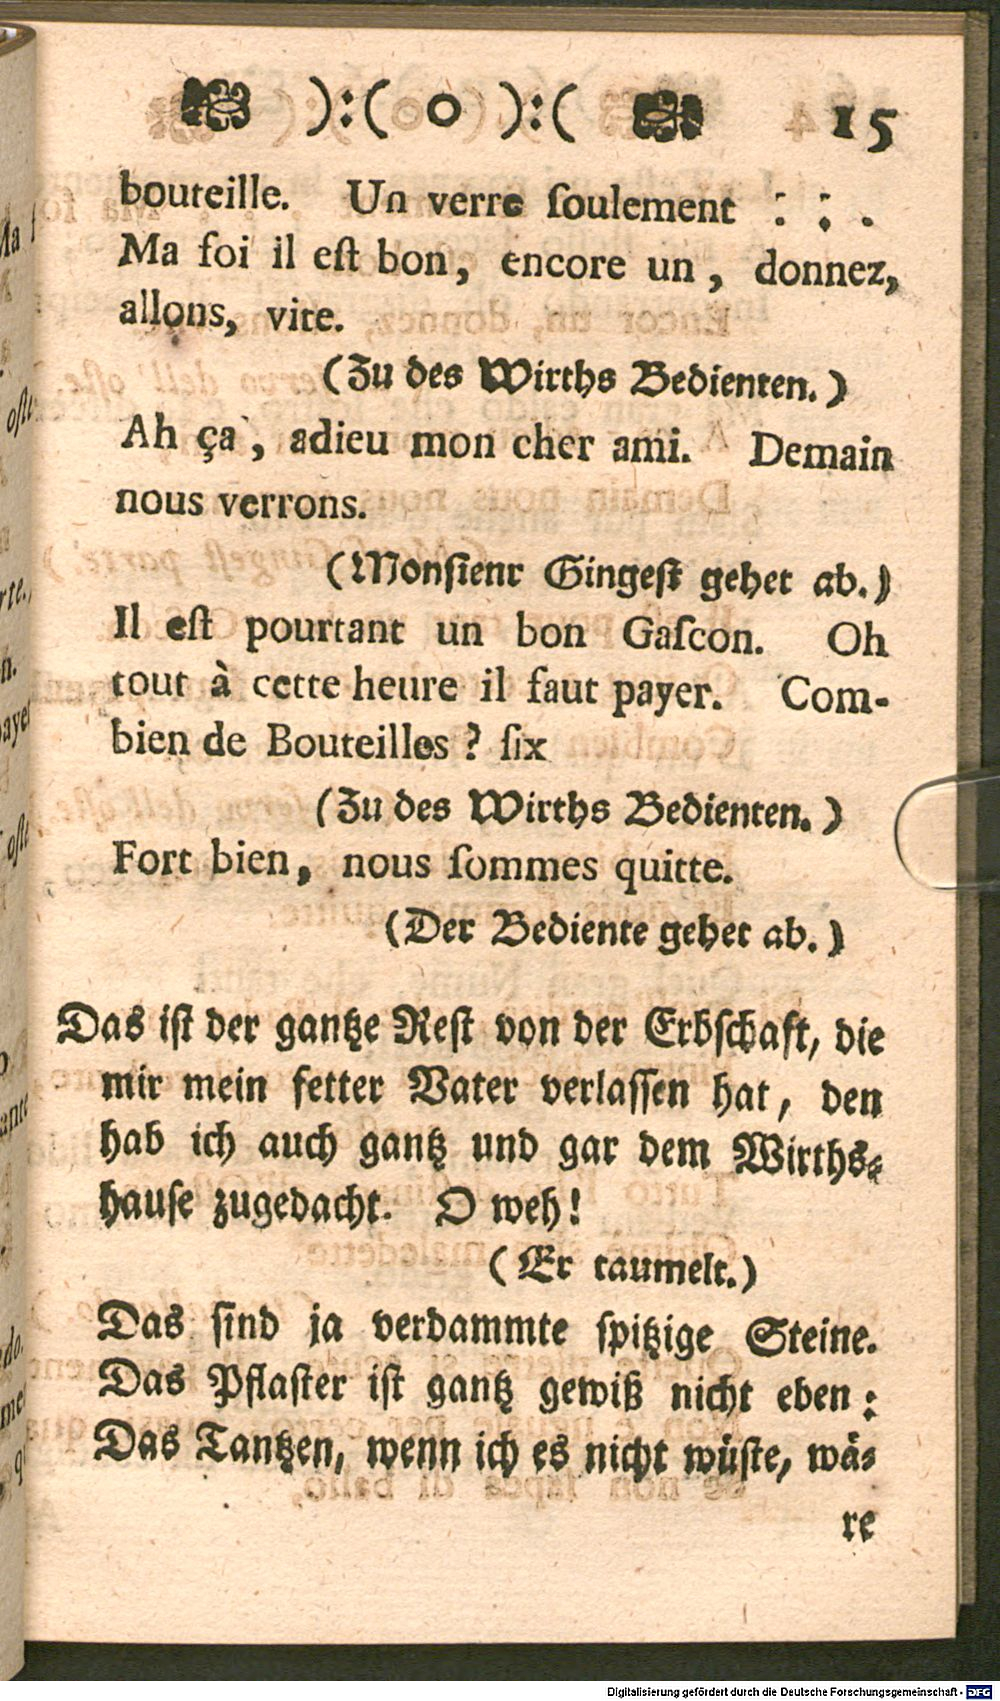 ):( o ):( 15
bouteille. Un verre ſoulement : : .
Ma foi il eſt bon, encore un, donnez,
allons, vite.
(Zu des Wirths Bedienten.)
Ah ça, adieu mon cher ami. Demain
nous verrons.
(Monſieur Gingeſt gehet ab.)
Il eſt pourtant un bon Gaſcon. Oh
tout à cette heure il faut payer. Com-
bien de Bouteilles? ſix
(Zu des Wirths Bedienten.)
Fort bien, nous ſommes quitte.
(Der Bediente gehet ab.)
Das iſt der gantze Reſt von der Erbſchaft, die
mir mein fetter Vater verlaſſen hat, den
hab ich auch gantz und gar dem Wirths-
hauſe zugedacht. O weh!
(Er taumelt.)
Das ſind ja verdammte ſpitzige Steine.
Das Pflaſter iſt gantz gewiß nicht eben:
Das Tantzen, wenn ich es nicht wüſte, wä-
re
Digitalisierung gefördert durch die Deutsche Forschungsgemeinschaft - DFG